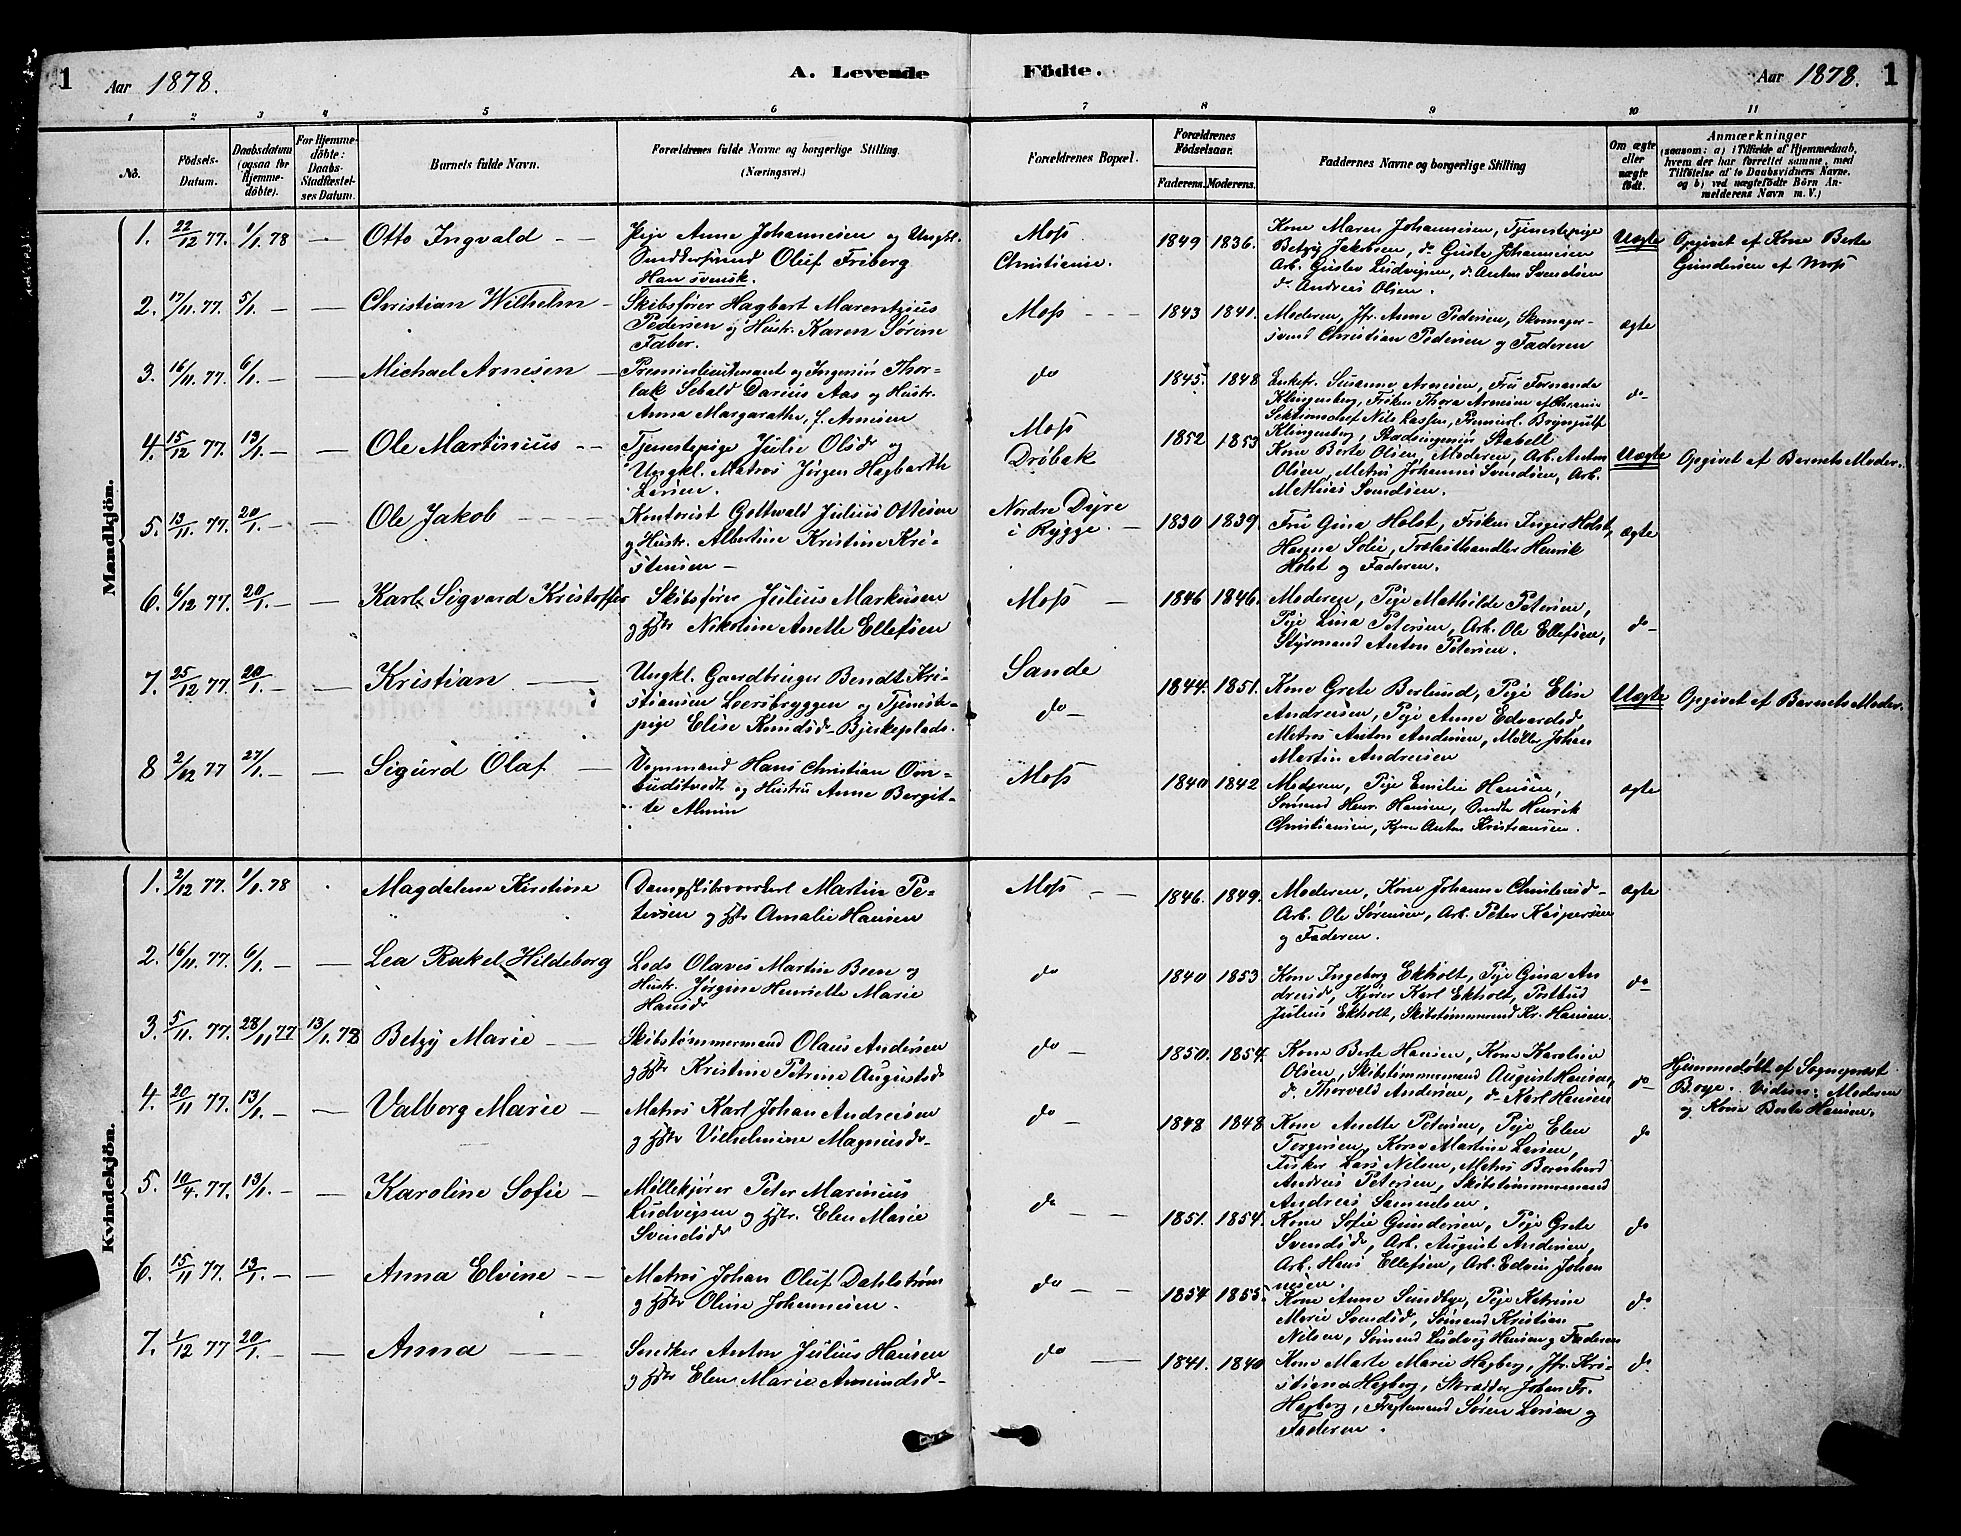 1 Aar 1878. A. Levende Födte. Aar 1878. 1
1 2 3 4 5 6 7 8 9 10 11
No.
Födsels-
Datum.
Daabsdatum
(ogsaa for
Hjemme-
döbte).
For Hjemme-
döbte:
Daabs-
Stadfæstel-
ses Datum.
Barnets fulde Navn.
Forældrenes fulde Navne og borgerlige Stilling.
(Næringsvei.)
Forældrenes Bopæl.
Forældrenes
Födselsaar.
Faderens. Moderens.
Faddernes Navne og borgerlige Stilling
Om ægte
eller
uægte
födt.
Anmærkninger
(saasom: a) i Tilfælde af Hjemmedaab,
hvem der har forrettet samme, med
Tilföielse af to Daabsvidners Navne,
og b) ved uægtefödte Börn An-
melderens Navn m. V.)
Mandkjön.
1. 22/12 77. 1/1. 78 — Otto Ingvald — —
Pige Anna Johannesen og Ungkl.
Snedkersvend Oluf Friberg
Han svensk.
Moss
Christiania.
1849 1836.
Kone Maren Johannesen, Tjenestepige
Betzy Jakobsen, do Guste Johannesen
Arb. Gustav Ludvigsen, do Anton Svendsen
do Andreas Olsen.
Uægte
Opgivet af Kone Berte
Gundersen af Moss
2. 17/11. 77. 5/1. — — Christian Wilhelm —
Skibsfører Hagbart Marentzius
Pedersen og Hustr. Karen Sørine
Faber.
Moss - - -
1843 1841.
Moderen, Jfr. Anne Pedersen, Skomager-
svend Christian Pedersen og Faderen
ægte
3. 16/11. 77. 6/1. — — Michael Arnesen —
Premierlieutenant og Ingeniør Thor-
lak Sebald Darius Aas og Hustr.
Anna Margarathe, f. Arnesen
do
1845. 1848.
Enkefr. Susanne Arnesen, Fru Fernanda
Klingenberg, Frøken Thora Arnesen af Chrania
Sektionschef Nils Lassen, Premierl. Brynjulf
Klingenberg, Stadsingeniør Stabell
do
4. 15/12 77. 13/1. — — Ole Martinius — —
Tjenestepige Julie Olsdr og
Ungkl. Matros Jørgen Hagbarth
Larsen.
Moss
Drøbak
1852 1853
Kone Berte Olsen, Moderen, Arb. Anton
Olsen, Matros Johannes Svendsen, Arb.
Mathias Svendsen.
Uægte
Opgivet af Barnets Moder.
5. 13/11. 77. 20/1. — — Ole Jakob — — —
Kontorist Gottwald Julius Ottesen
og Hustr. Albertine Kristine Kri-
stensen —
Nordre Dyre
i Rygge. —
1830 1839.
Fru Gina Holst, Frøken Inger Holst,
Hanna Sofie, Trælasthandler Henrik
Holst og Faderen.
ægte
6. 6/12 77. 20/1. — — Karl Sigvard Kristoffer
Skibsfører Julius Markusen
og Hstr Nikoline Anette Ellefsen
Moss —
1846 1846.
Moderen, Pige Mathilde Petersen,
Pige Lina Petersen, Arb. Ole Ellefsen,
Styrmand Anton Petersen.
do
7. 25/12 77. 20/1. — — Kristian — —
Ungkl. Gaardbruger Bendt Kri-
stiansen Lersbryggen og Tjeneste-
pige Elise Knudsd. Bjerkeplads.
Sande
do —
1844. 1851.
Kone Grete Berlund, Pige Elise
Andresen, Pige Anne Edvardsd,
Matros Anton Andersen, Møller Johan
Martin Andreasen
Uægte
Opgivet af Barnets Moder.
8 2/12 77 27/1. — — Sigurd Olaf —
Vommand Hans Christian
og Hustru Anne Bergit-
te Almin
Moss
1840 1842
Moderen, Pige Emilie Hansen,
Sømand Henr. Hansen, Henrik
Christiansen, Anton Kristiansen.
ægte
Kvindekjön.
1. 2/12 77. 1/1. 78 Magdelene Kirstine
Martin Pe-
tersen og Hstr Amalie Hansen
Moss — —
1846. 1849.
Moderen, Kone Johanne Christensd.
Arb. Ole Sørensen, Arb. Peter Kaspersen
og Faderen.
ægte
2. 16/11. 77. 6/1. — — Lea Rakel Hildeborg
Lods Olaves Martin Been og
Hustr. Jørgine Henriette Marie
Hansdr
do
1840 1853
Kone Ingeborg Ekholt, Pige Gina An
dreasd, Kjører Karl Ekholt, Postbud
Julius Ekholt, Skibstømmermand Kr. Hansen.
do
3. 5/11. 77. 28/11 77 13/1. 78 Betzy Marie — —
Skibstømmermand Olaus Andersen
og Hstr Kristine Petrine Augustsdr
do —
1850. 1854.
Kone Berte Hansen, Kone Karoline
Olsen, Skibstømmermand August Hansen,
do. Thorvald Andersen, do Karl Hansen
do
Hjemmedøbt af Sogneprest
Boye. Vidner: Moderen
og Kone Berte Hansen.
4. 20/11 77. 13/1. — — Valborg Marie —
Matros Karl Johan Andreasen
og Hstr Vilhelmine Magnusdr.
do —
1848 1848
Kone Anette Petersen, Pige Elen
Torgersen, Kone Martine Larsen,
Fisker Lars Nilsen, Matros Bernhard
Andreas Petersen, Skibstømmermand
Andreas Samuelsen.
do
5. 10/4. 77. 13/1. — — Karoline Sofie —
Møllekjører Peter Marinius
Ludvigsen og Hstr. Elen Marie
Svendsdr
do — —
1851. 1854.
Kone Sofie Gundersen, Pige Grete
Svendsdr, Arb. August Andersen,
Arb. Hans Ellefsen, Arb. Edvin Johan
nesen.
do
6. 15/11 77. 13/1. — — Anna Elvine — —
Matros Johan Oluf Dahlstrøm
og Hstr Oline Johannesen.
do — —
1854 1855.
Kone Anne Sundbye, Pige Katrine
Marie Svendsdr, Sømand Kristian
Nilsen, Sømand Ludvig Hansen og Faderen
do
7. 1/12 77 20/1. — — Anna — — —
Snedker Anton Julius Hansen
og Hstr Elen Marie Amundsdr.
do —
1841. 1840
Kone Marte Marie Hagberg, Jfr. Kri-
stiane Hagberg, Skrædder Johan Fr.
Hagberg, Fragtemand Søren Larsen og
Faderen.
do